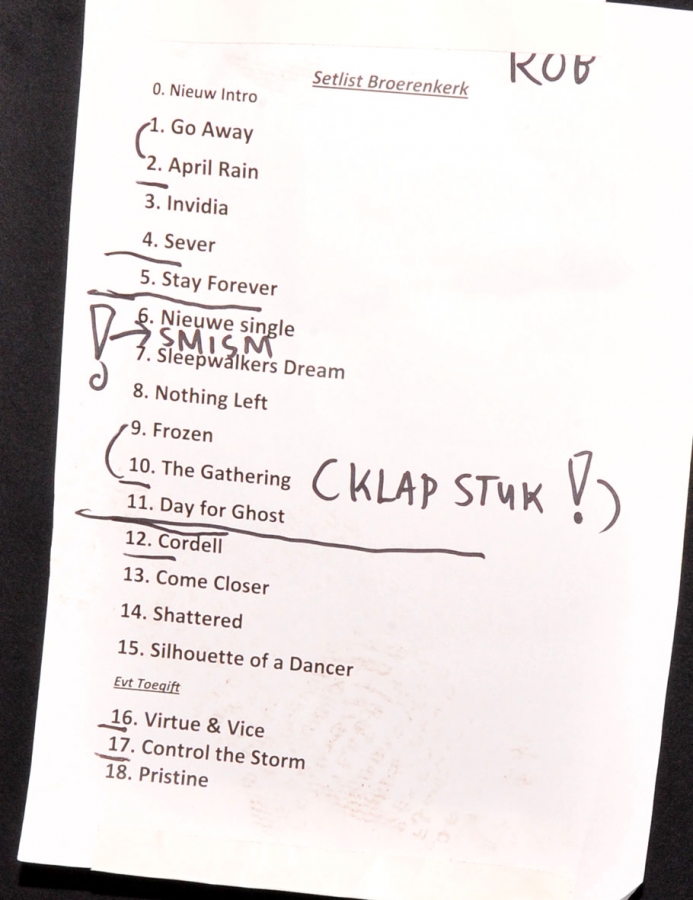 ROB
Setlist Broerenkerk
0. Nieuw Intro
1. Go Away
2. April Rain
3. Invidia
4. Sever
5. Stay Forever
6. Nieuwe single
! → SMISM
7. Sleepwalkers Dream
8. Nothing Left
9. Frozen
10. The Gathering (KLAP STUK !)
11. Day for Ghost
12. Cordell
13. Come Closer
14. Shattered
15. Silhouette of a Dancer
Evt Toegift
16. Virtue & Vice
17. Control the Storm
18. Pristine